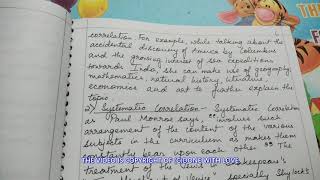 correlation. For example, while talking about the
accidental discovery of America by Columbus
and the growing interest of sea expeditions
towards India, she can make use of geography,
mathematics, natural history, literature
economics and art to further explain the
topic.
2) Systematic Correlation:- Systematic Correlation
as Paul Monroe says, "involves such
arrangement of the content of the various
subjects in the curriculum as makes them
constantly bear upon each other" The
THE VIDEO IS COPYRIGHT OF
WITH LOVE
treatment of the
Shakespeare's
of Venice" specially Shylock's
THE